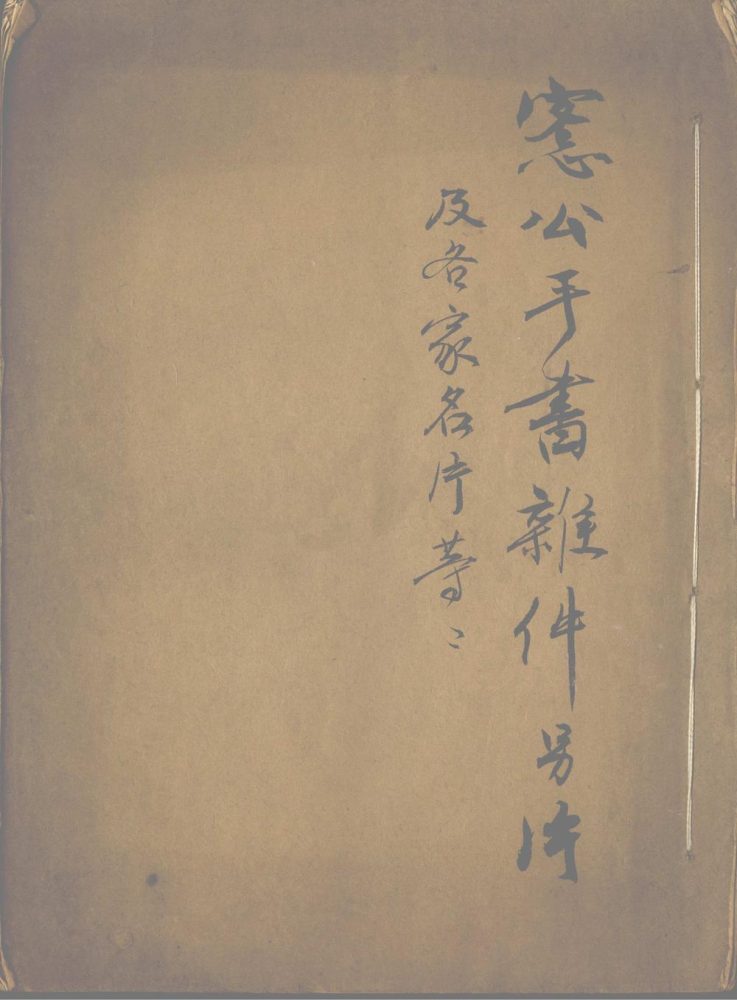 愙公手書雜件另片
及各家名片等〻